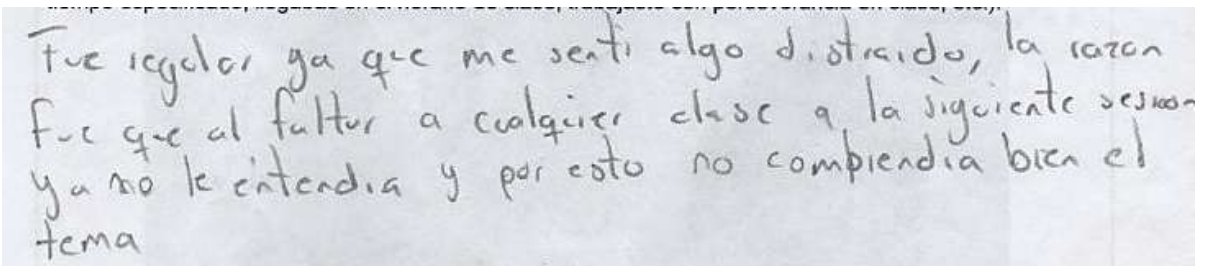 Fue regular ya que me senti algo distraido, la razon
fue que al faltar a cualquier clase a la siguiente sesion
ya no le entendia y por esto no comprendia bien el
tema